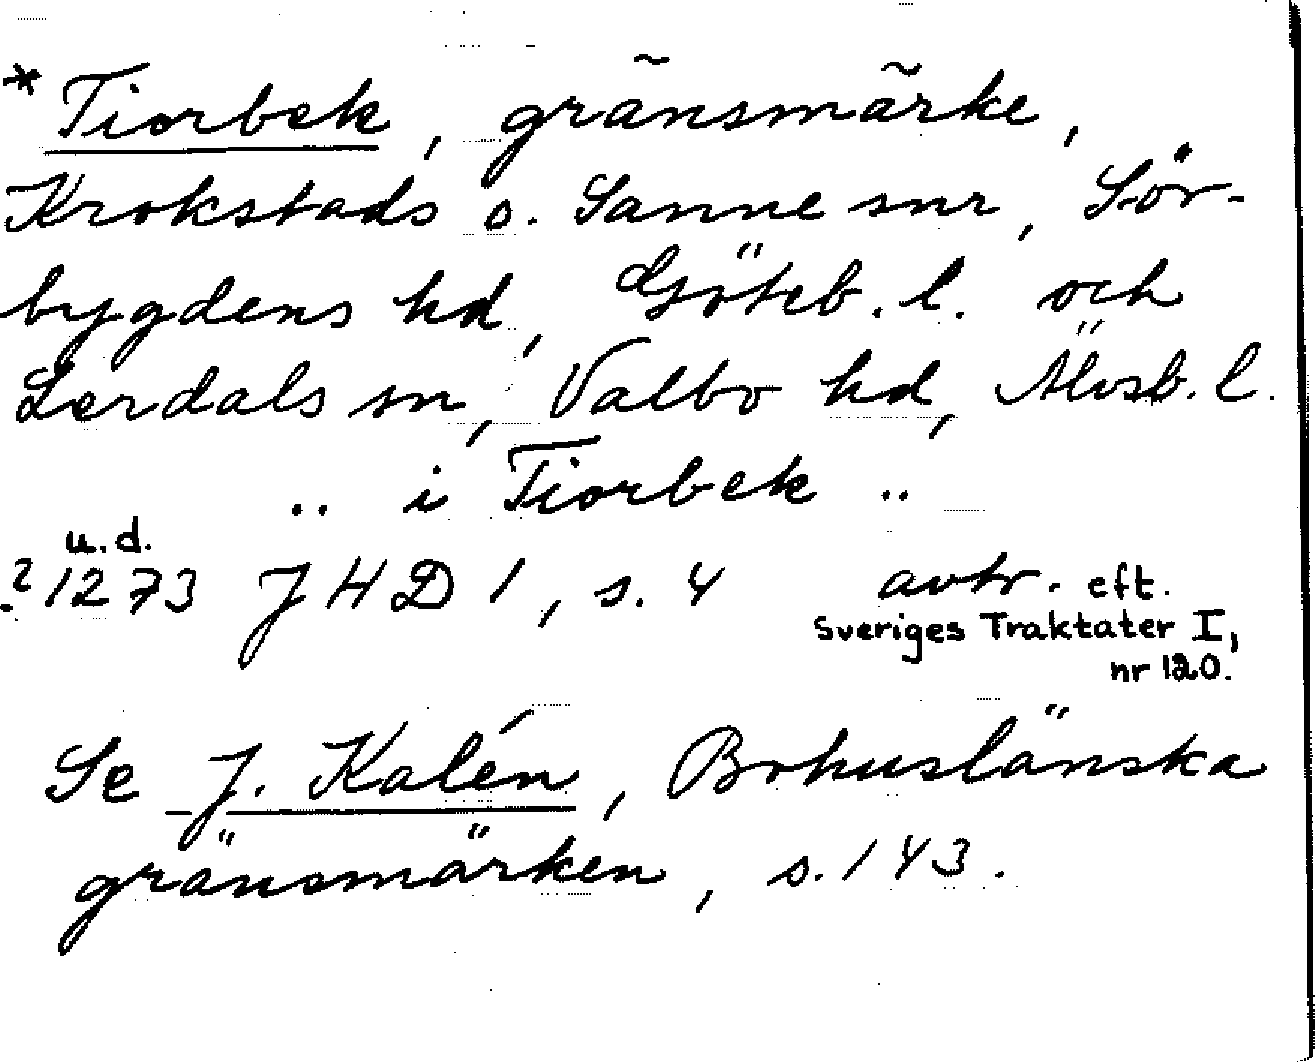 * Tiorbek, gränsmärke,
Krokstads o. Sanne snr, Sör-
bygdens hd, Göteb. l. och
Lerdals sn, Valbo hd, Älvsb. l.
.. i Tiorbek ..
u. d.
? 1273 JHD 1, s. 4 avtr. eft.
Sveriges Traktater I,
nr 120.
Se J. Kalén, Bohuslänska
gränsmärken, s. 143.